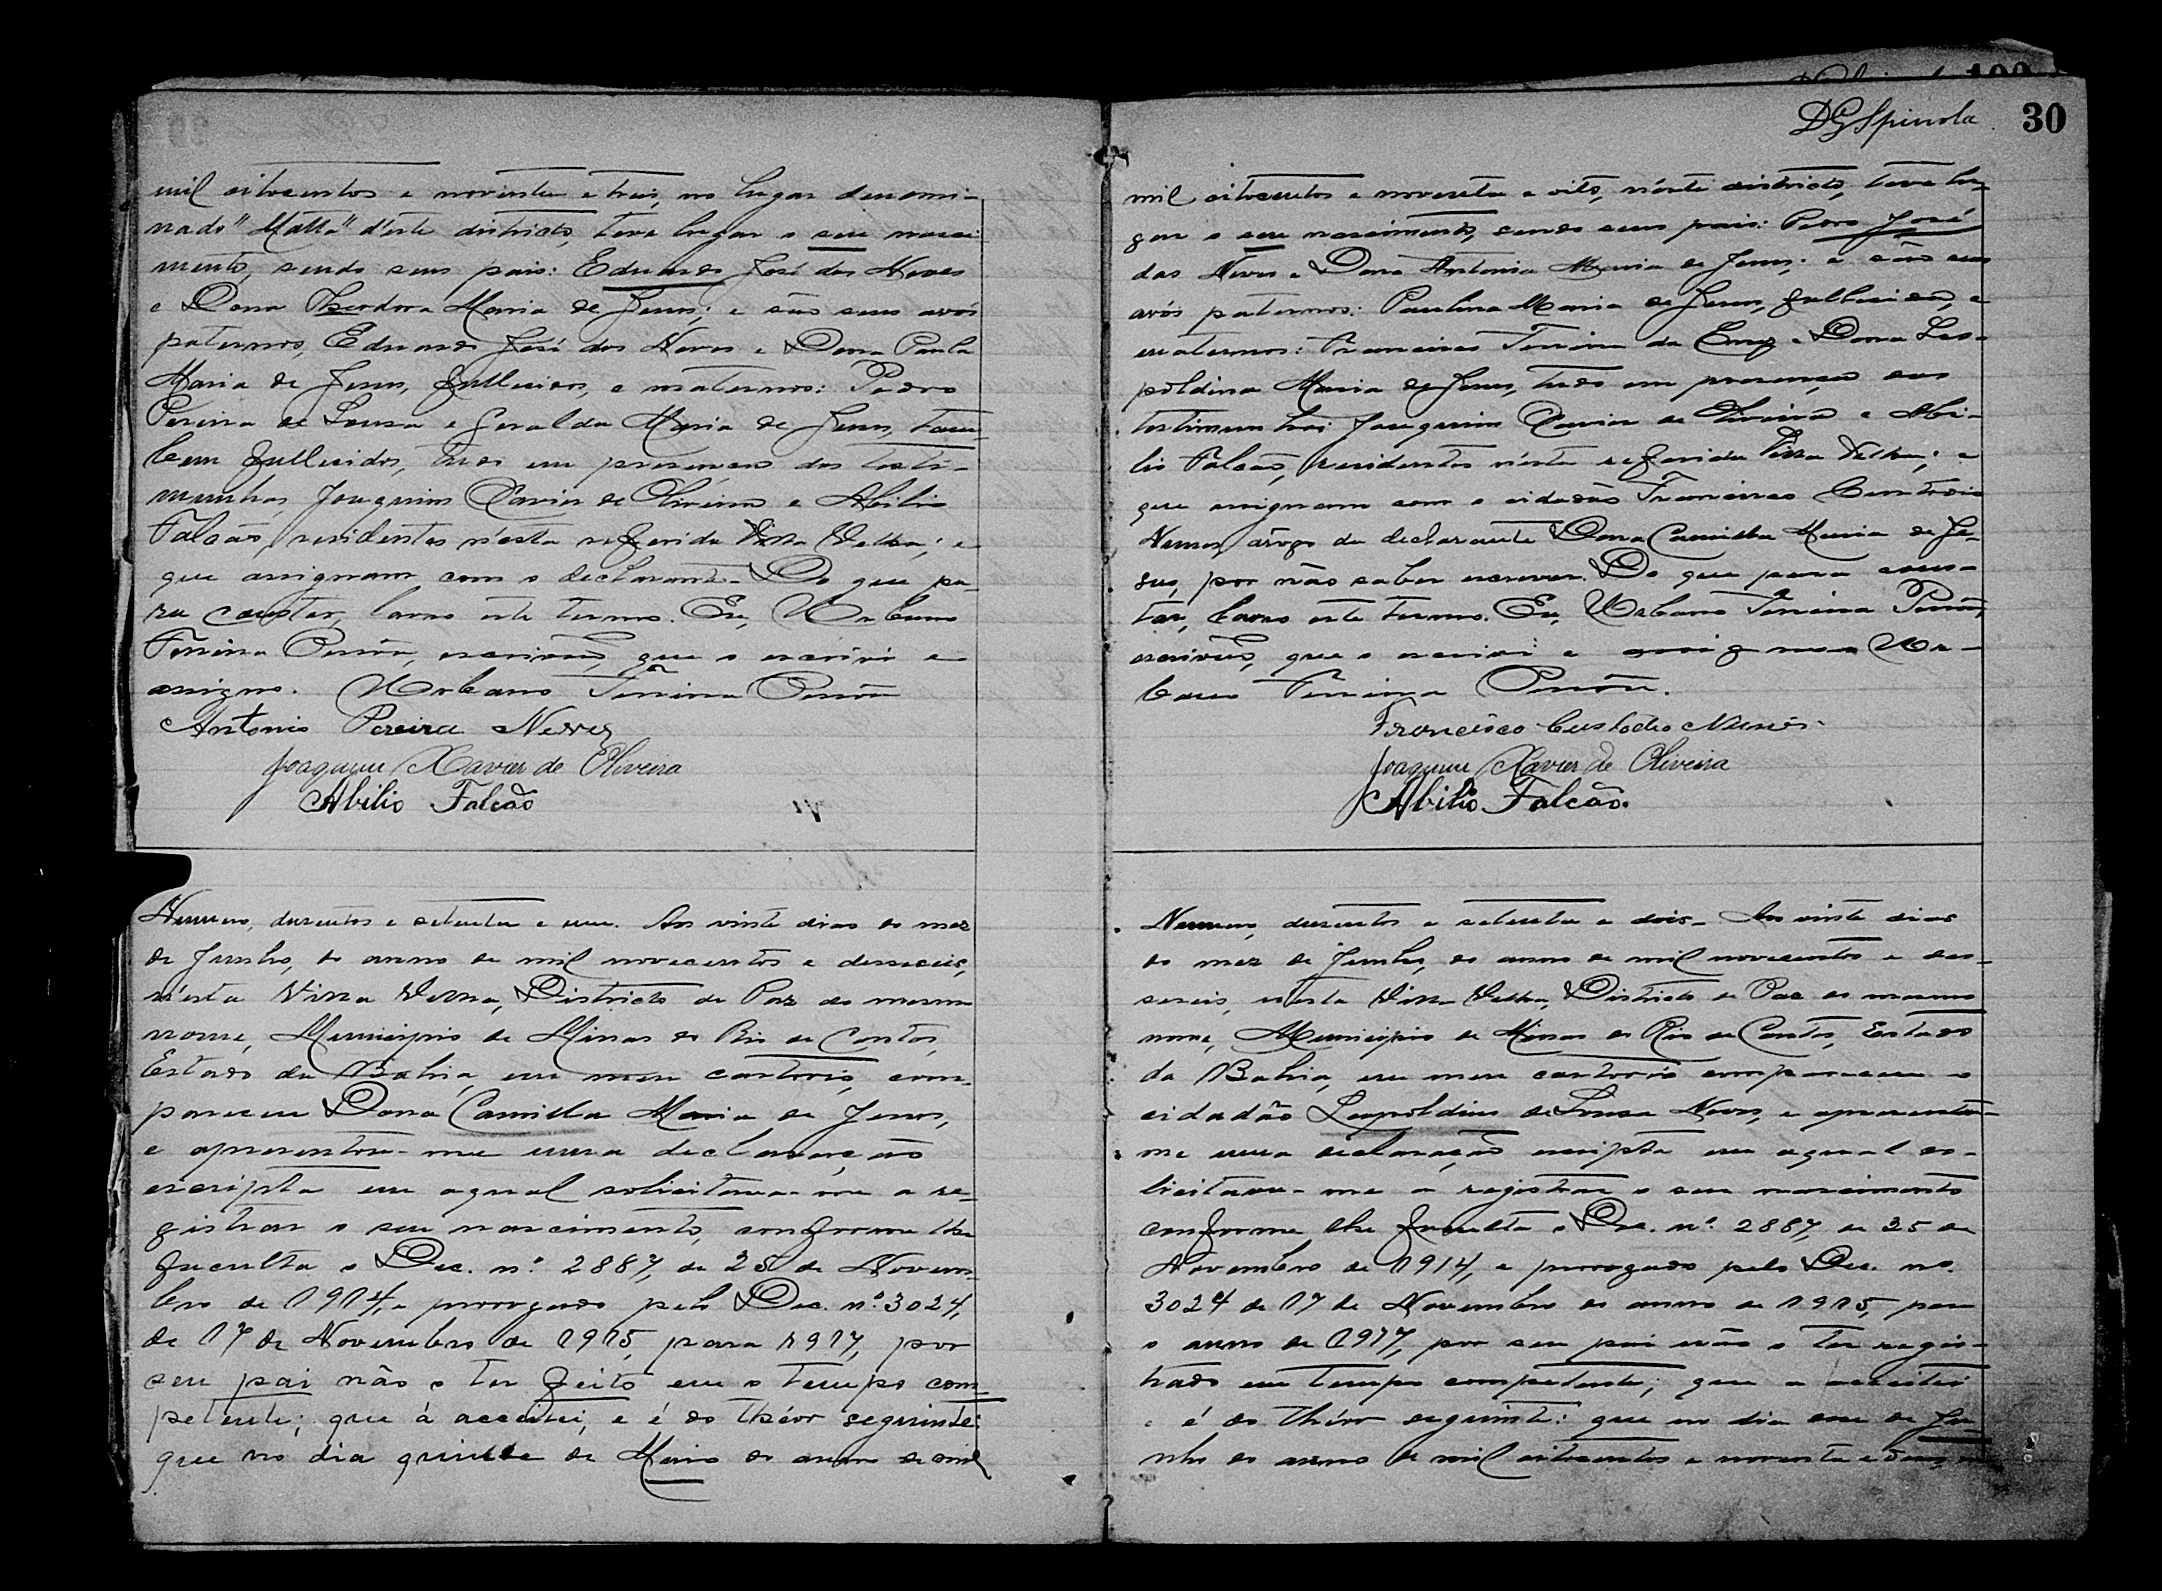 mil oitocentos e noventa e treis, no lugar denomi-
nado "Matta" d'este districto, teve lugar o seu nasci-
mento, sendo seus pais: Eduardo José das Neves
e Dona Theodora Maria de Jesus; e são seus avós
paternos, Eduardo José das Neves e Dona Paula
Maria de Jesus, fallecidos, e maternos: Pedro
Pereira de Sousa e Geralda Maria de Jesus, tam-
bem fallecidos, tudo em presença das testi-
munhas, Joaquim Xavier de Oliveira e Abilio
Falcão, residentes n'esta referida Villa Velha; e
que assignam com o declarante. Do que pa-
ra constar, lavro este termo. Eu, Urbano
Ferreira, escrivão, que o escrivi e
assigno. Urbano Ferreira
Antonio Pereira Neves
Joaquim Xavier de Oliveira
Abilio Falcão
Numero, duzentos e setenta e um. Aos vinte dias do mez
de Junho, do anno de mil novecentos e desseseis,
n'esta Villa Velha, Districto de Paz do mesmo
nome, Municipio de Minas do Rio de Contas,
Estado da Bahia, em meu cartorio, com-
pareceu Dona Camilla Maria de Jesus,
e apresentou-me uma declaração
escripta em a qual solicitava-me a re-
gistrar o seu nascimento, conforme lhe
faculta o Dec. nº 2887, de 25 de Novem-
bro de 1914, e prorogado pelo Dec. nº 3024,
de 17 de Novembro de 1915, para 1917, por
seu pai não o ter feito em o tempo com-
petente; que á acceitei, e é do théor seguinte:
que no dia quinze de Maio do anno de mil
DGSpinola 30
mil oitocentos e noventa e oito, n'éste districto, teve lu-
gar o seu nascimento, sendo seus pais: Pedro José
das Neves e Dona Antonia Maria de Jesus; e são seus
avós paternos: Paulina Maria de Jesus, fallecida, e
maternos: Francisco Ferreira da Cruz e Dona Leo-
poldina Maria de Jesus, tudo em presença das
testimunhas Joaquim Xavier de Oliveira e Abi-
lio Falcão, residentes n'ésta referida Villa Velha; e
que assignam com o cidadão Francisco Custodio
Nunes, árogo da declarante Dona Camilla Maria de Je-
sus, por não saber escrever. Do que para cons-
tar, lavro este termo. Eu, Urbano Ferreira
escrivão, que o escrivi e assigno. Ur-
bano Ferreira
Francisco Custodio Nunes.
Joaquim Xavier de Oliveira
Abilio Falcão.
Numero, duzentos e setenta e dois. Aos vinte dias
do mez de Junho, do anno de mil novecentos e des-
seseis, n'esta Villa Velha, Districto de Paz do mesmo
nome, Municipio de Minas do Rio de Contas, Estado
da Bahia, em meu cartorio compareceu o
cidadão Leopoldino de Sousa Neves, e apresentou-
me uma declaração escripta em a qual so-
licitava-me a registrar o seu nascimento
conforme lhe faculta o Dec. nº 2887, de 25 de
Novembro de 1914, e prorogado pelo Dec. no.
3024 de 17 de Novembro do anno de 1915, para
o anno de 1917, por seu pai não o ter regis-
trado em tempo competente; que a acceitei
e é do théor seguinte: que no dia onze de Ju-
nho do anno de mil oitocentos e noventa e